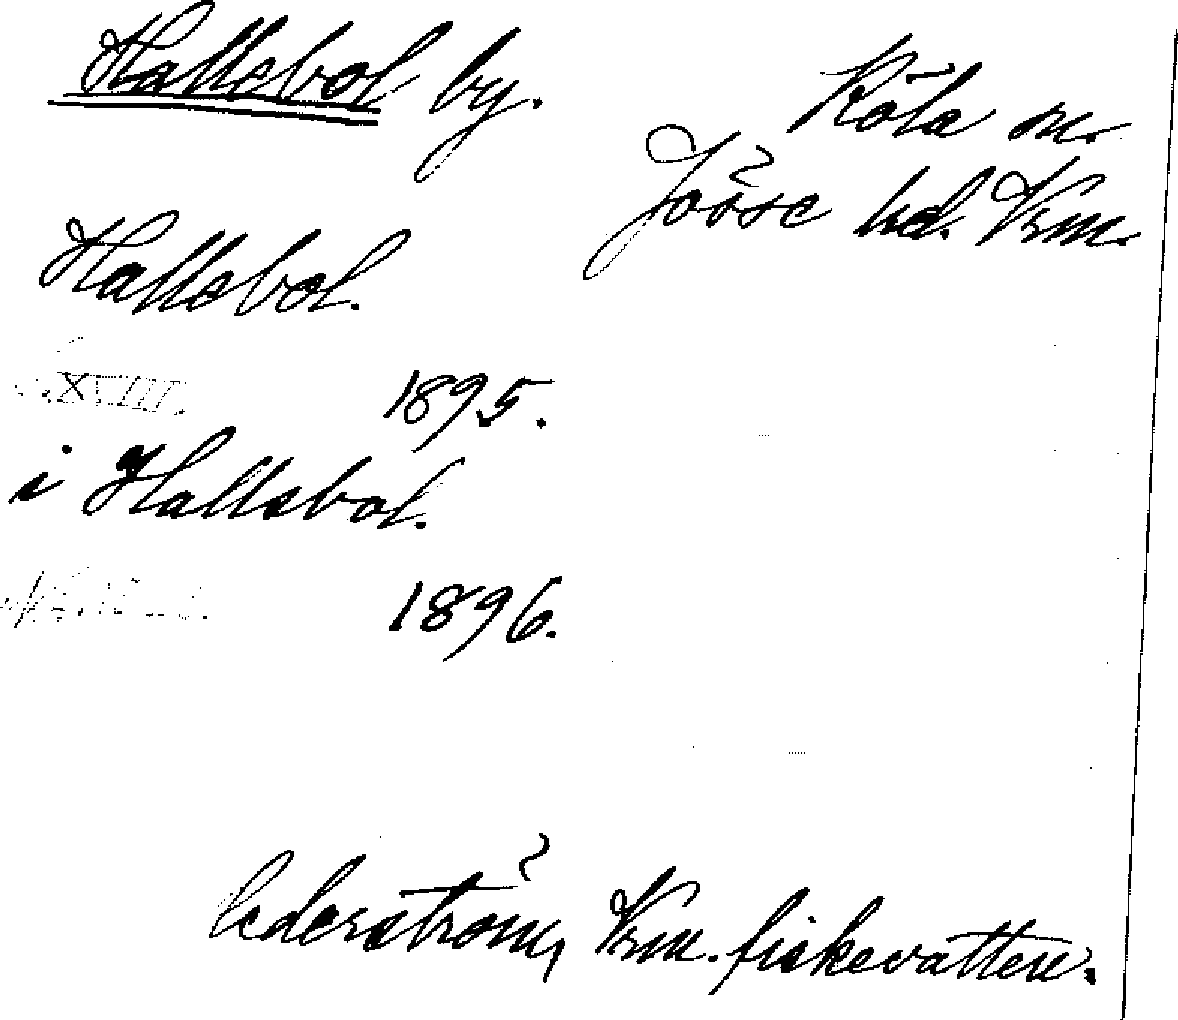 Hallebol by.
Köla sn.
Jösse hd. Vrm.
Hallebol.
XVIII. 1895.
i Hallebol.
1896.
Cederström, Vrm. fiskevatten.